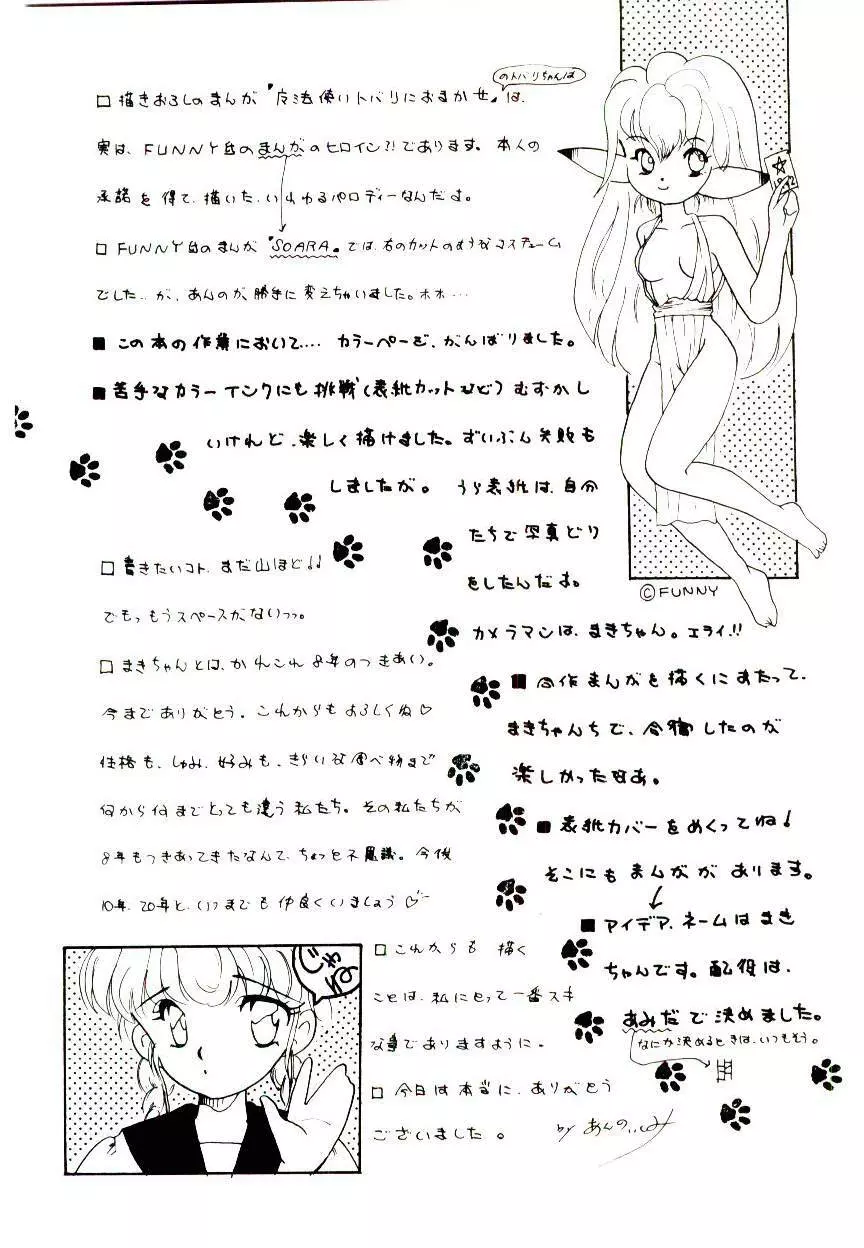 のトバリちゃんは
□描きおろしのまんが『反法使いトバリにおまかせ』は、
実は、FUNNY自のまんがのヒロイン?!であります。本人の
承諾を得て、描いた、いわゆるパロディーなんだよ。
□FUNNY自のまんが『SOARA』では、右のカットのようなコスチューム
でした…が、あんのが、勝手に変えちゃいました。ホホ…
■この本の作業において…. カラーページを、がんばりました。
■苦手なカラーインクにも挑戦(表紙カットなど)むずかし
いけれど、楽しく描けました。ずいぶん失敗も
しましたが。 うら表紙は、自分
たちで写真どり
をしたんだよ。
カメラマンは、まきちゃん。エライ!!
©FUNNY
■合作まんがを描くにあたって、
まきちゃんちで、合宿したのが
楽しかったなあ。
■表紙カバーをめくってね!
そこにもまんががあります。
■アイデア、ネームはまき
ちゃんです。配役は、
あみだで決めました。
なにか決めるときは、いつもそう。
□書きたいコト、まだ山ほど!!
でもっもうスペースがないっっ。
□まきちゃんとは、かれこれ8年のつきあい。
今までありがとう。これからもよろしくね♡
性格も、しゅみ、好みも、きらいな食べ物まで
何から何までとっても違う私たち。その私たちが
8年もつきあってきたなんて、ちょっと不思議。今後
10年、20年と、いつまでも仲良くいましょう♡
じゃね
□これからも 描く
ことは、私にとって一番スキ
な事でありますように。
□今日は本当に、ありがとう
ございました。 by あんの